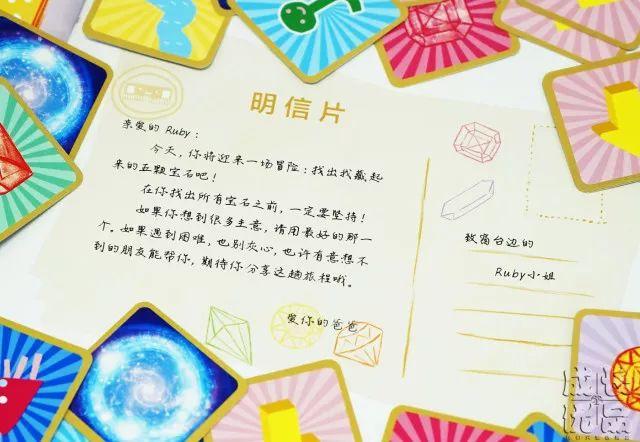 明信片
亲爱的 Ruby：
今天，你将迎来一场冒险：找出我藏起
来的五颗宝石吧！
在你找出所有宝石之前，一定要坚持！
如果你想到很多主意，请用最好的那一
个。如果遇到困难，也别灰心，也许有意想不
到的朋友能帮你，期待你分享这趟旅程哦。
爱你的爸爸
致窗台边的
Ruby小姐
成长优品